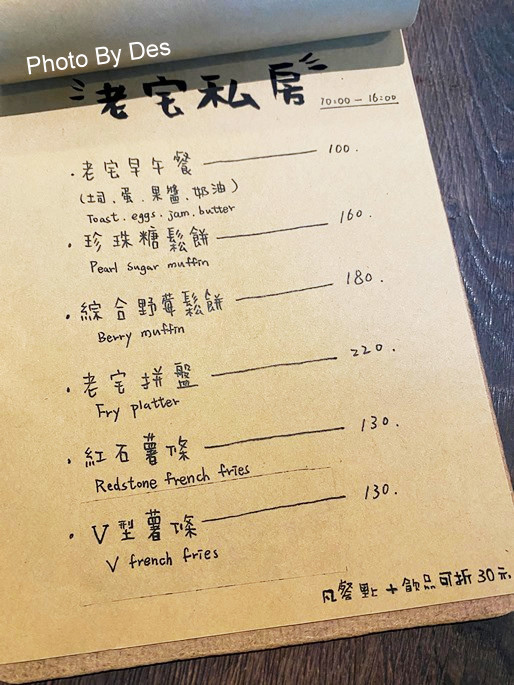 Photo By Des
老宅私房 10:00 - 16:00
· 老宅早午餐 100.
(土司.蛋.果醬.奶油)
Toast. eggs. jam. butter
· 珍珠糖鬆餅 160.
Pearl Sugar muffin
· 綜合野莓鬆餅 180.
Berry muffin
· 老宅拼盤 220.
Fry platter
· 紅石薯條 130.
Redstone french fries
· V型薯條 130.
V french fries
凡餐點+飲品可折30元.